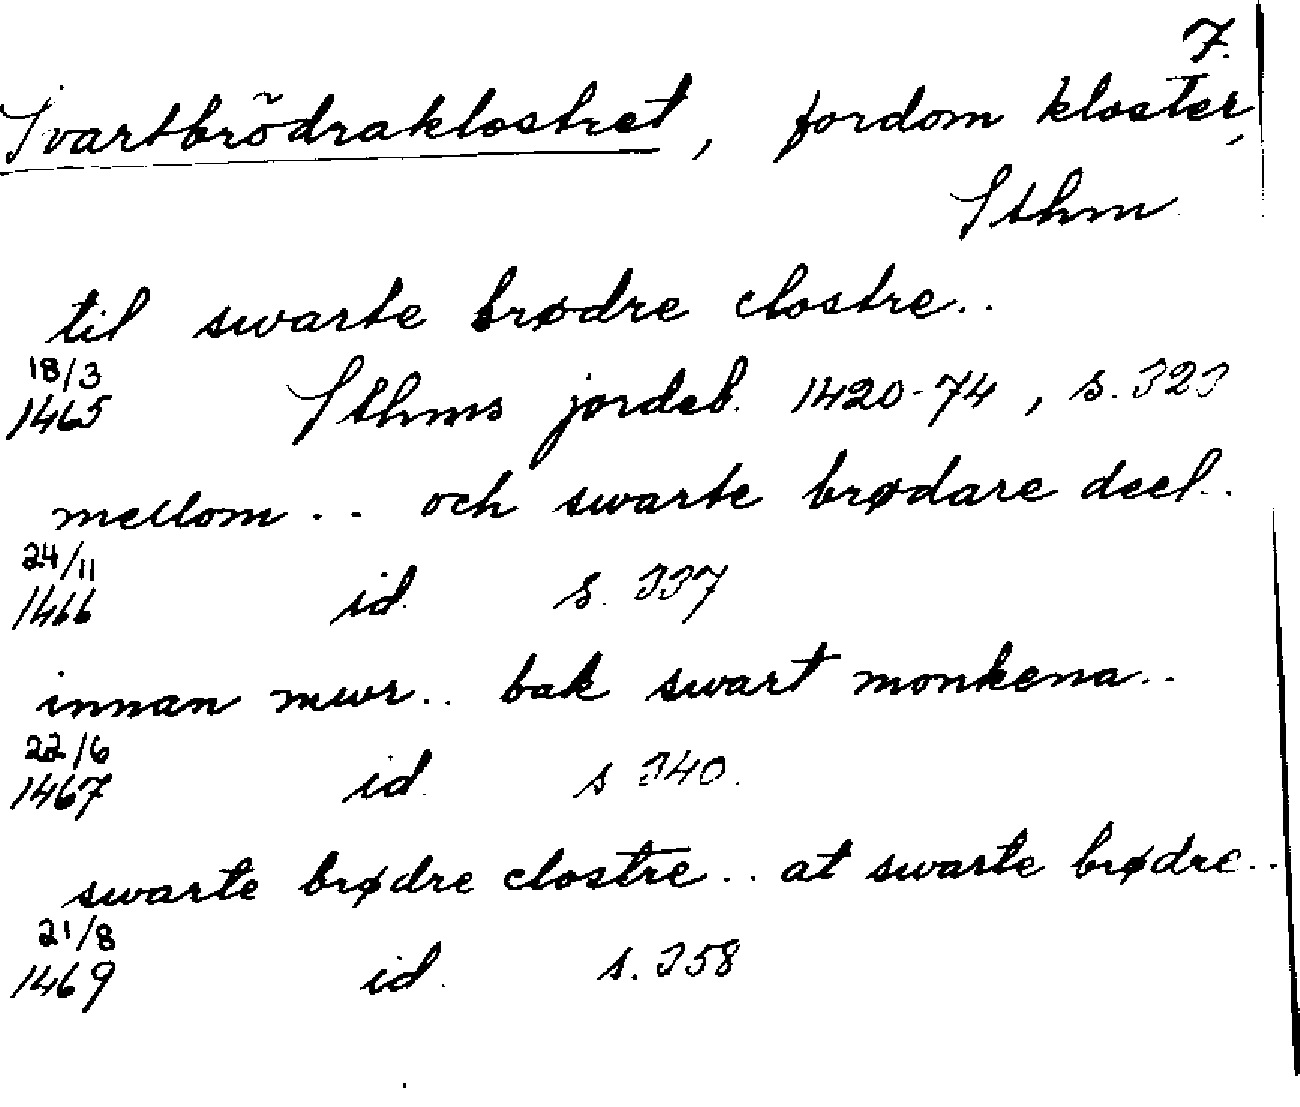 7.
Svartbrödraklostret, fordom kloster,
Sthm
til swarte brødre clostre..
18/3
1465 Sthms jordeb. 1420-74, s. 323
mellom . . och swarte brødare deel..
24/11
1466 id. s. 337
innan mwr.. bak swart monkena..
22/6
1467 id. s 340.
swarte brødre clostre.. at swarte brødre..
21/8
1469 id. s. 358